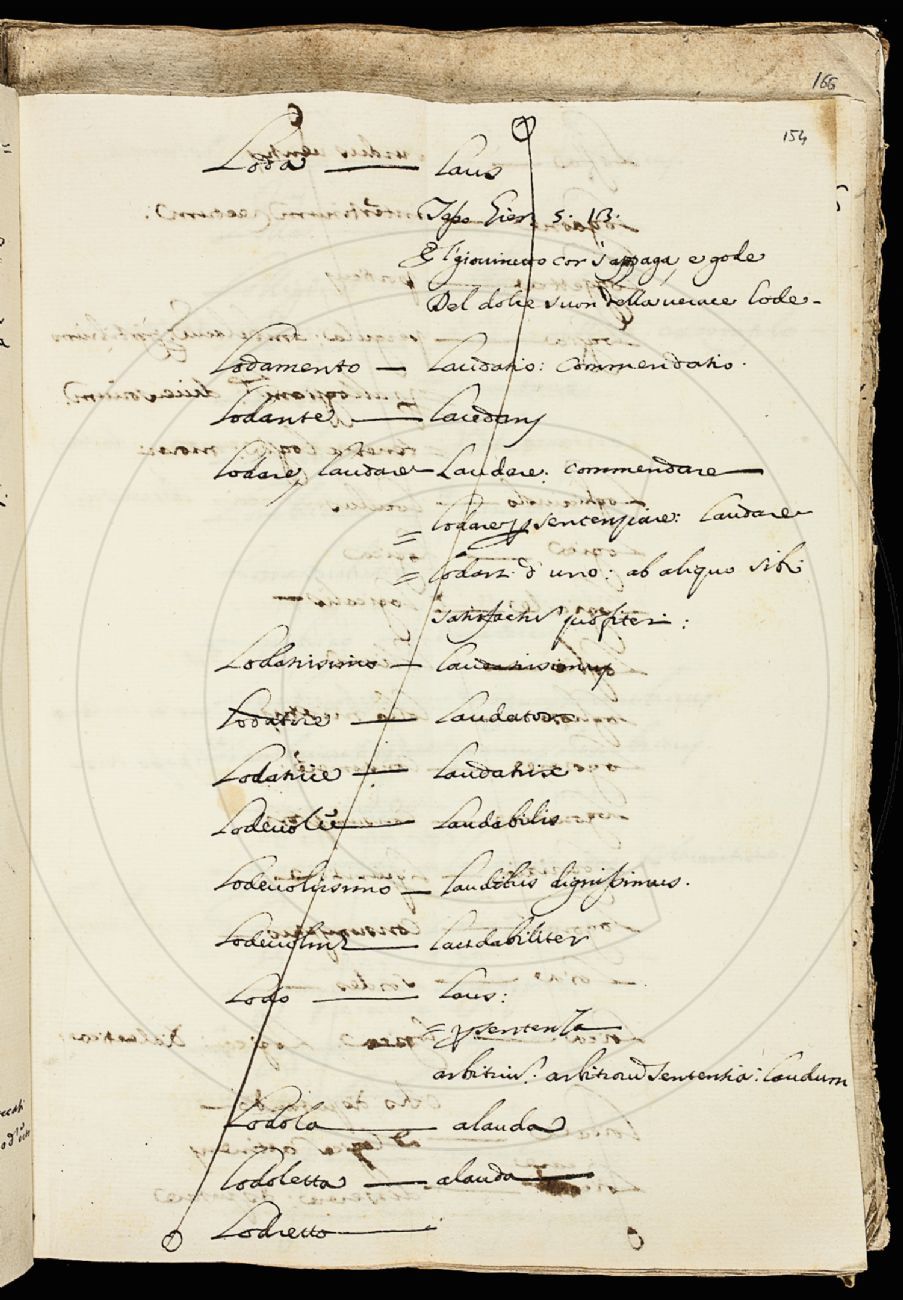 166
154
Loda — Laus
5. 13.
E'l giovinetto cor s'appaga, e gode
Del dolce suon della verace lode -
Lodamento — Laudatio: Commendatio.
Lodante — Laudans
Lodare, laudare — Laudare: commendare —
= lodare p sentenziare: laudare
= lodarsi d'uno: ab aliquo sibi
satisfactu profiteri:
Lodatissimo — laudatissimus
Lodatore — Laudator
Lodatrice — Laudatrix
Lodevole — Laudabilis
Lodevolissimo — Laudibus dignissimus.
Lodevolmte — laudabiliter
Lodo — Laus:
= p sentenza
arbitriu: arbitrorũ sententia: laudum
Lodola — alauda
Lodoletta — alauda
Lodretto —